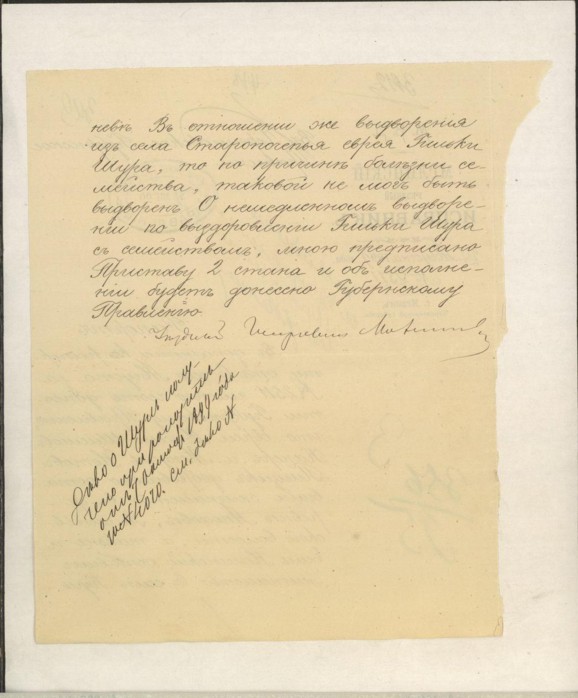 невѣ. Въ отношеніи же выдворенія
изъ села Старопочепья еврея Гильки
Шура, то по причинѣ болѣзни се-
мейства, таковой не могъ быть
выдворенъ. О немедленномъ выдворе-
ніи по выздоровленіи Гильки Шура
съ семействомъ, мною предписано
Приставу 2 стана и объ исполне-
ніи будетъ донесено Губернскому
Правленію
Уѣздный Исправникъ
Дѣло о Шурѣ полу-
чено при
отъ 1899 года
за № см. дѣло №